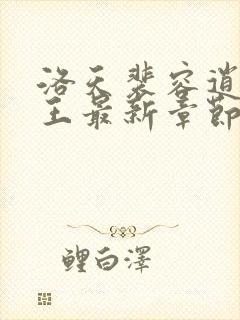 洛天裴容逍
王最新章節
鲤白澤